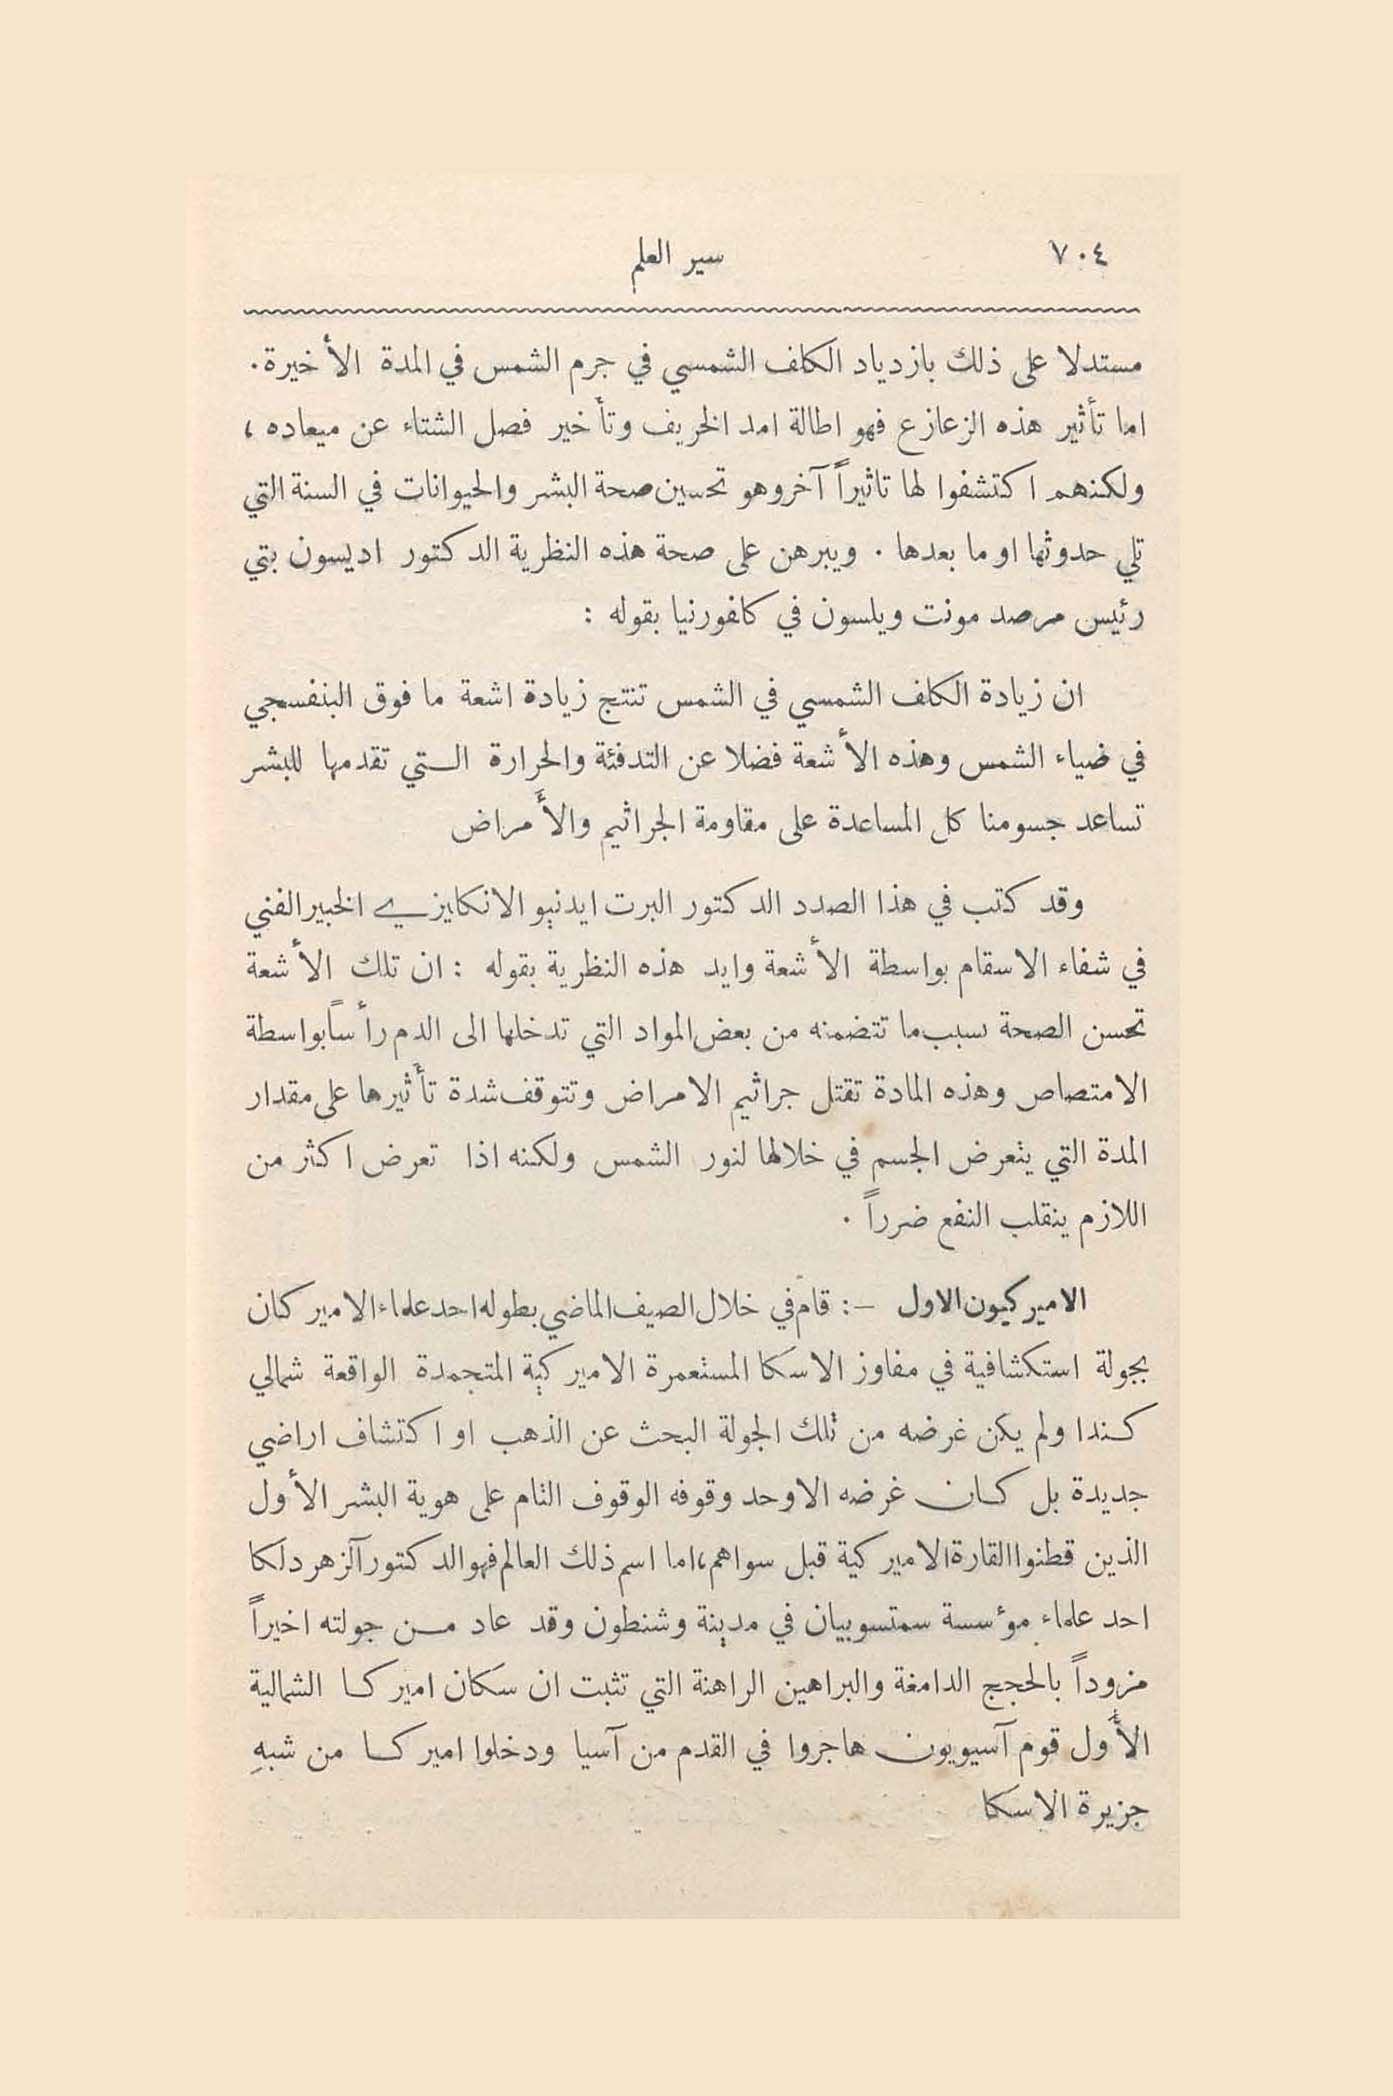 ٧٠٤
سير العلم
مستدلا على ذلك بازدياد الكلف الشمسي في جرم الشمس في المدة الأخيرة.
اما تأثير هذه الزعازع فهو اطالة امد الخريف وتأخير فصل الشتاء عن ميعاده ،
ولكنهم اكتشفوا لها تاثيراً آخر وهو تحسين صحة البشر والحيوانات في السنة التي
تلي حدوثها او ما بعدها . ويبرهن على صحة هذه النظرية الدكتور اديسون بتي
رئيس مرصد مونت ويلسون في كافورنيا بقوله :
ان زيادة الكلف الشمسي في الشمس تنتج زيادة اشعة ما فوق البنفسجي
في ضياء الشمس وهذه الأشعة فضلا عن التدفئة والحرارة الـتي تقدمها للبشر
تساعد جسومنا كل المساعدة على مقاومة الجراثيم والأمراض
وقد كتب في هذا الصدد الدكتور البرت ايدنيو الانكايزي الخبير الفني
في شفاء الاسقام بواسطة الأشعة وايد هذه النظرية بقوله : ان تلك الأشعة
تحسن الصحة سبب ما تتضمنه من بعض المواد التي تدخلها الى الدم رأساً بواسطة
الامتصاص وهذه المادة تقتل جراثيم الامراض وتتوقف شدة تأثيرها على مقدار
المدة التي يتعرض الجسم في خلالها لنور الشمس ولكنه اذا تعرض اكثر من
اللازم ينقلب النفع ضرراً .
الاميركيون الاول –: قام في خلال الصيف الماضي بطوله احد علماء الاميركان
بجولة استكشافية في مفاوز الاسكا المستعمرة الاميركية المتجمدة الواقعة شمالي
كـندا ولم يكن غرضه من تلك الجولة البحث عن الذهب او اكتشاف اراضي
جديدة بل كـان غرضه الاوحد وقوفه الوقوف التام على هوية البشر الأول
الذين قطنوا القارة الاميركية قبل سواهم، اما اسم ذلك العالم فهو الدكتور آلزهردلكا
احد علماء مؤسسة سمتسوبيان في مدينة وشنطون وقد عاد مـن جولته اخيراً
مزوداً بالحجج الدامغة والبراهين الراهنة التي تثبت ان سكان اميركـا الشمالية
الأول قوم آسيويون هاجروا في القدم من آسيا ودخلوا اميركـا من شبهِ
جزيرة الاسكا